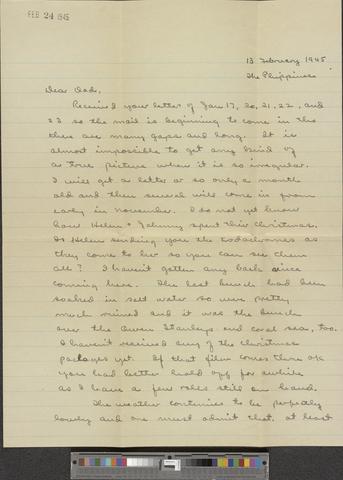 FEB 24 1945
13 February 1945
The Philippines
Dear Dad,
Received your letter of Jan 17, 20, 21, 22, and
23 so the mail is beginning to come in tho
there are many gaps and long. It is
almost impossible to get any kind of
a true picture when it is so irregular.
I will get a letter or so only a month
old and then several will come in from
early in November. I do not yet know
how Helen + Johnny spent their Christmas.
Is Helen sending you the kodachromes as
they come to her so you can see them
all? I haven't gotten any back since
coming here. The last bunch had been
soaked in salt water so were pretty
much ruined and it was the bunch
over the Owen Stanleys and coral sea, too.
I haven't received any of the Christmas
packages yet. If that film comes there ok
you had better hold off for awhile
as I have a few rolls still on hand.
The weather continues to be perfectly
lovely and one must admit that, at least